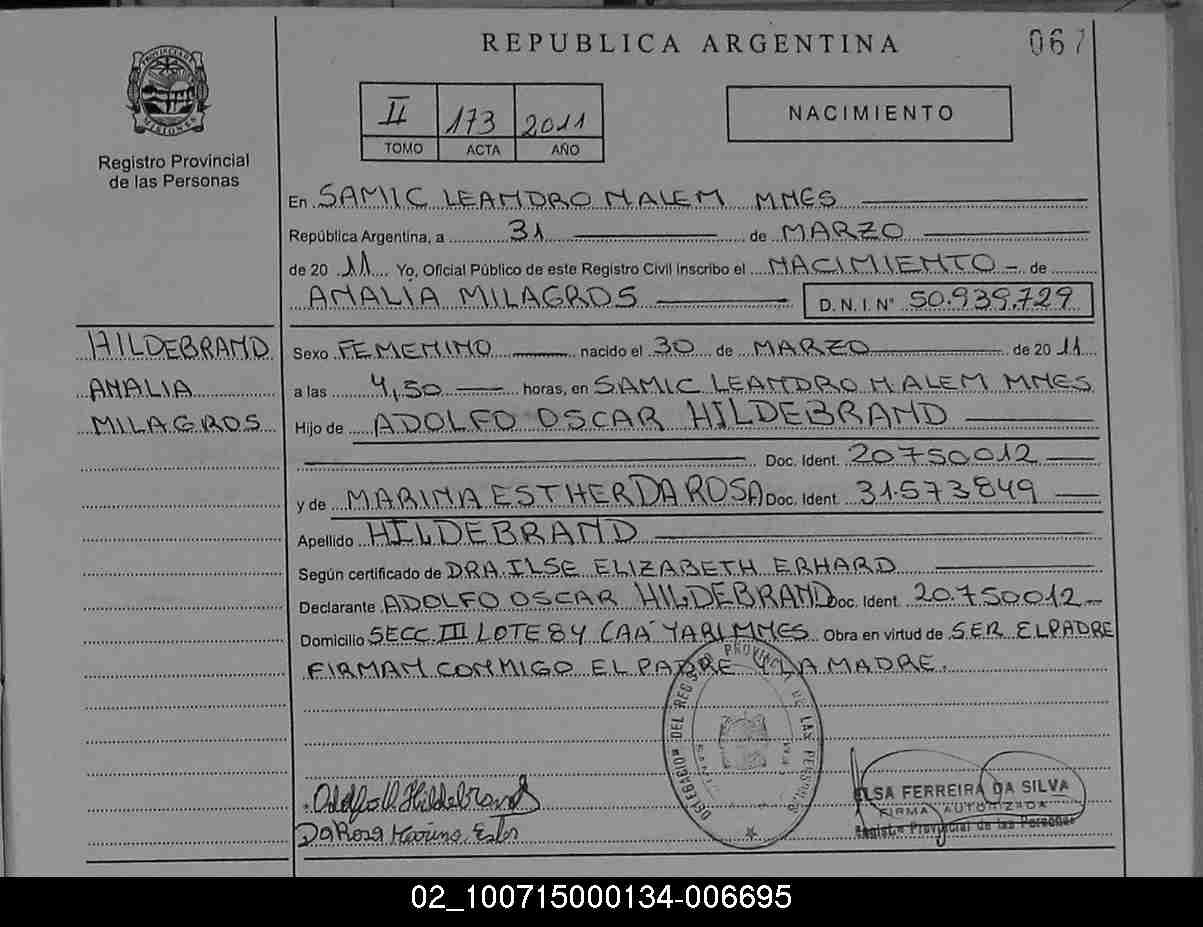 REPUBLICA ARGENTINA
067
PROVINCIA DE
MISIONES
Registro Provincial
de las Personas
II 173 2011
TOMO ACTA AÑO
NACIMIENTO
En SAMIC LEANDRO N ALEM MNES
República Argentina, a 31 de MARZO
de 20 11 Yo, Oficial Público de este Registro Civil inscribo el NACIMIENTO - de
ANALIA MILAGROS D. N. I. N° 50.939.729
HILDEBRAND
ANALIA
MILAGROS
Sexo FEMENINO nacido el 30 de MARZO de 20 11
a las 4,50 horas, en SAMIC LEANDRO N ALEM MNES
Hijo de ADOLFO OSCAR HILDEBRAND
Doc. Ident. 20750012
y de MARINA ESTHER DA ROSA Doc. Ident. 31.573849
Apellido HILDEBRAND
Según certificado de DRA. ILSE ELIZABETH ERHARD
Declarante ADOLFO OSCAR HILDEBRAND Doc. Ident. 20.750012-
Domicilio SECC. III LOTE 84 CAA YARI MNES Obra en virtud de SER EL PADRE
FIRMAN CONMIGO EL PADRE Y LA MADRE.
DEL REGISTRO PROVINCIAL DE LAS PERSONAS
Adolfo O. Hildebrand
Da Rosa Marina Ester
ELSA FERREIRA DA SILVA
FIRMA AUTORIZADA
Regist. Provincial de las Personas
02_100715000134-006695